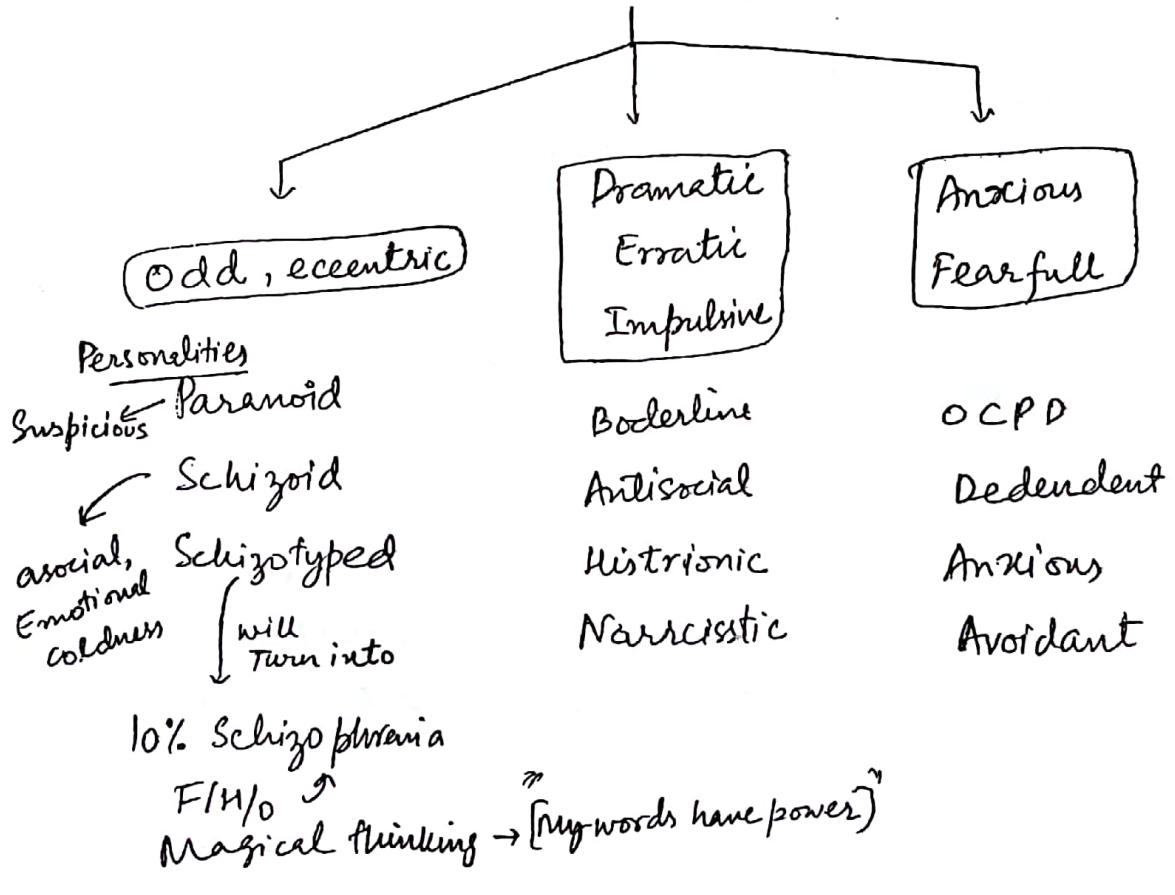 Odd, eccentric
Personalities
Suspicious
Paranoid
Schizoid
asocial,
Emotional
coldness
Schizotyped
will
Turn into
10% Schizophrenia
F/H/O
Magical thinking → "[My words have power]"
Dramatic
Erratic
Impulsive
Boderline
Antisocial
Histrionic
Narrcisstic
Anxious
Fearfull
OCPD
Dedendent
Anxious
Avoidant